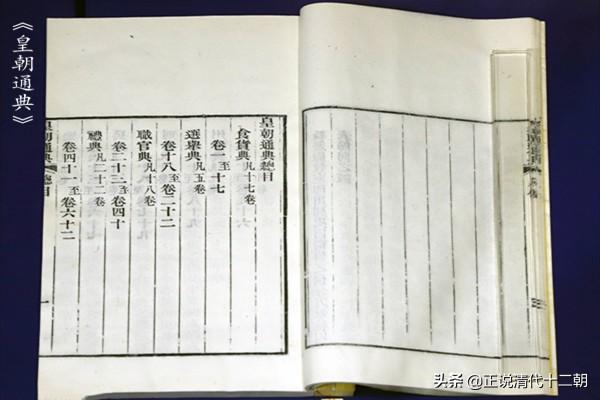 《皇朝通典》
皇朝通典總目
食貨典凡十七卷
卷一至十七
選舉典凡五卷
卷十八至卷二十二
職官典凡十八卷
卷二十三至卷四十
禮典凡二十二卷
卷四十一至卷六十二
皇朝通典 總目
一
头条 @正说清代十二朝